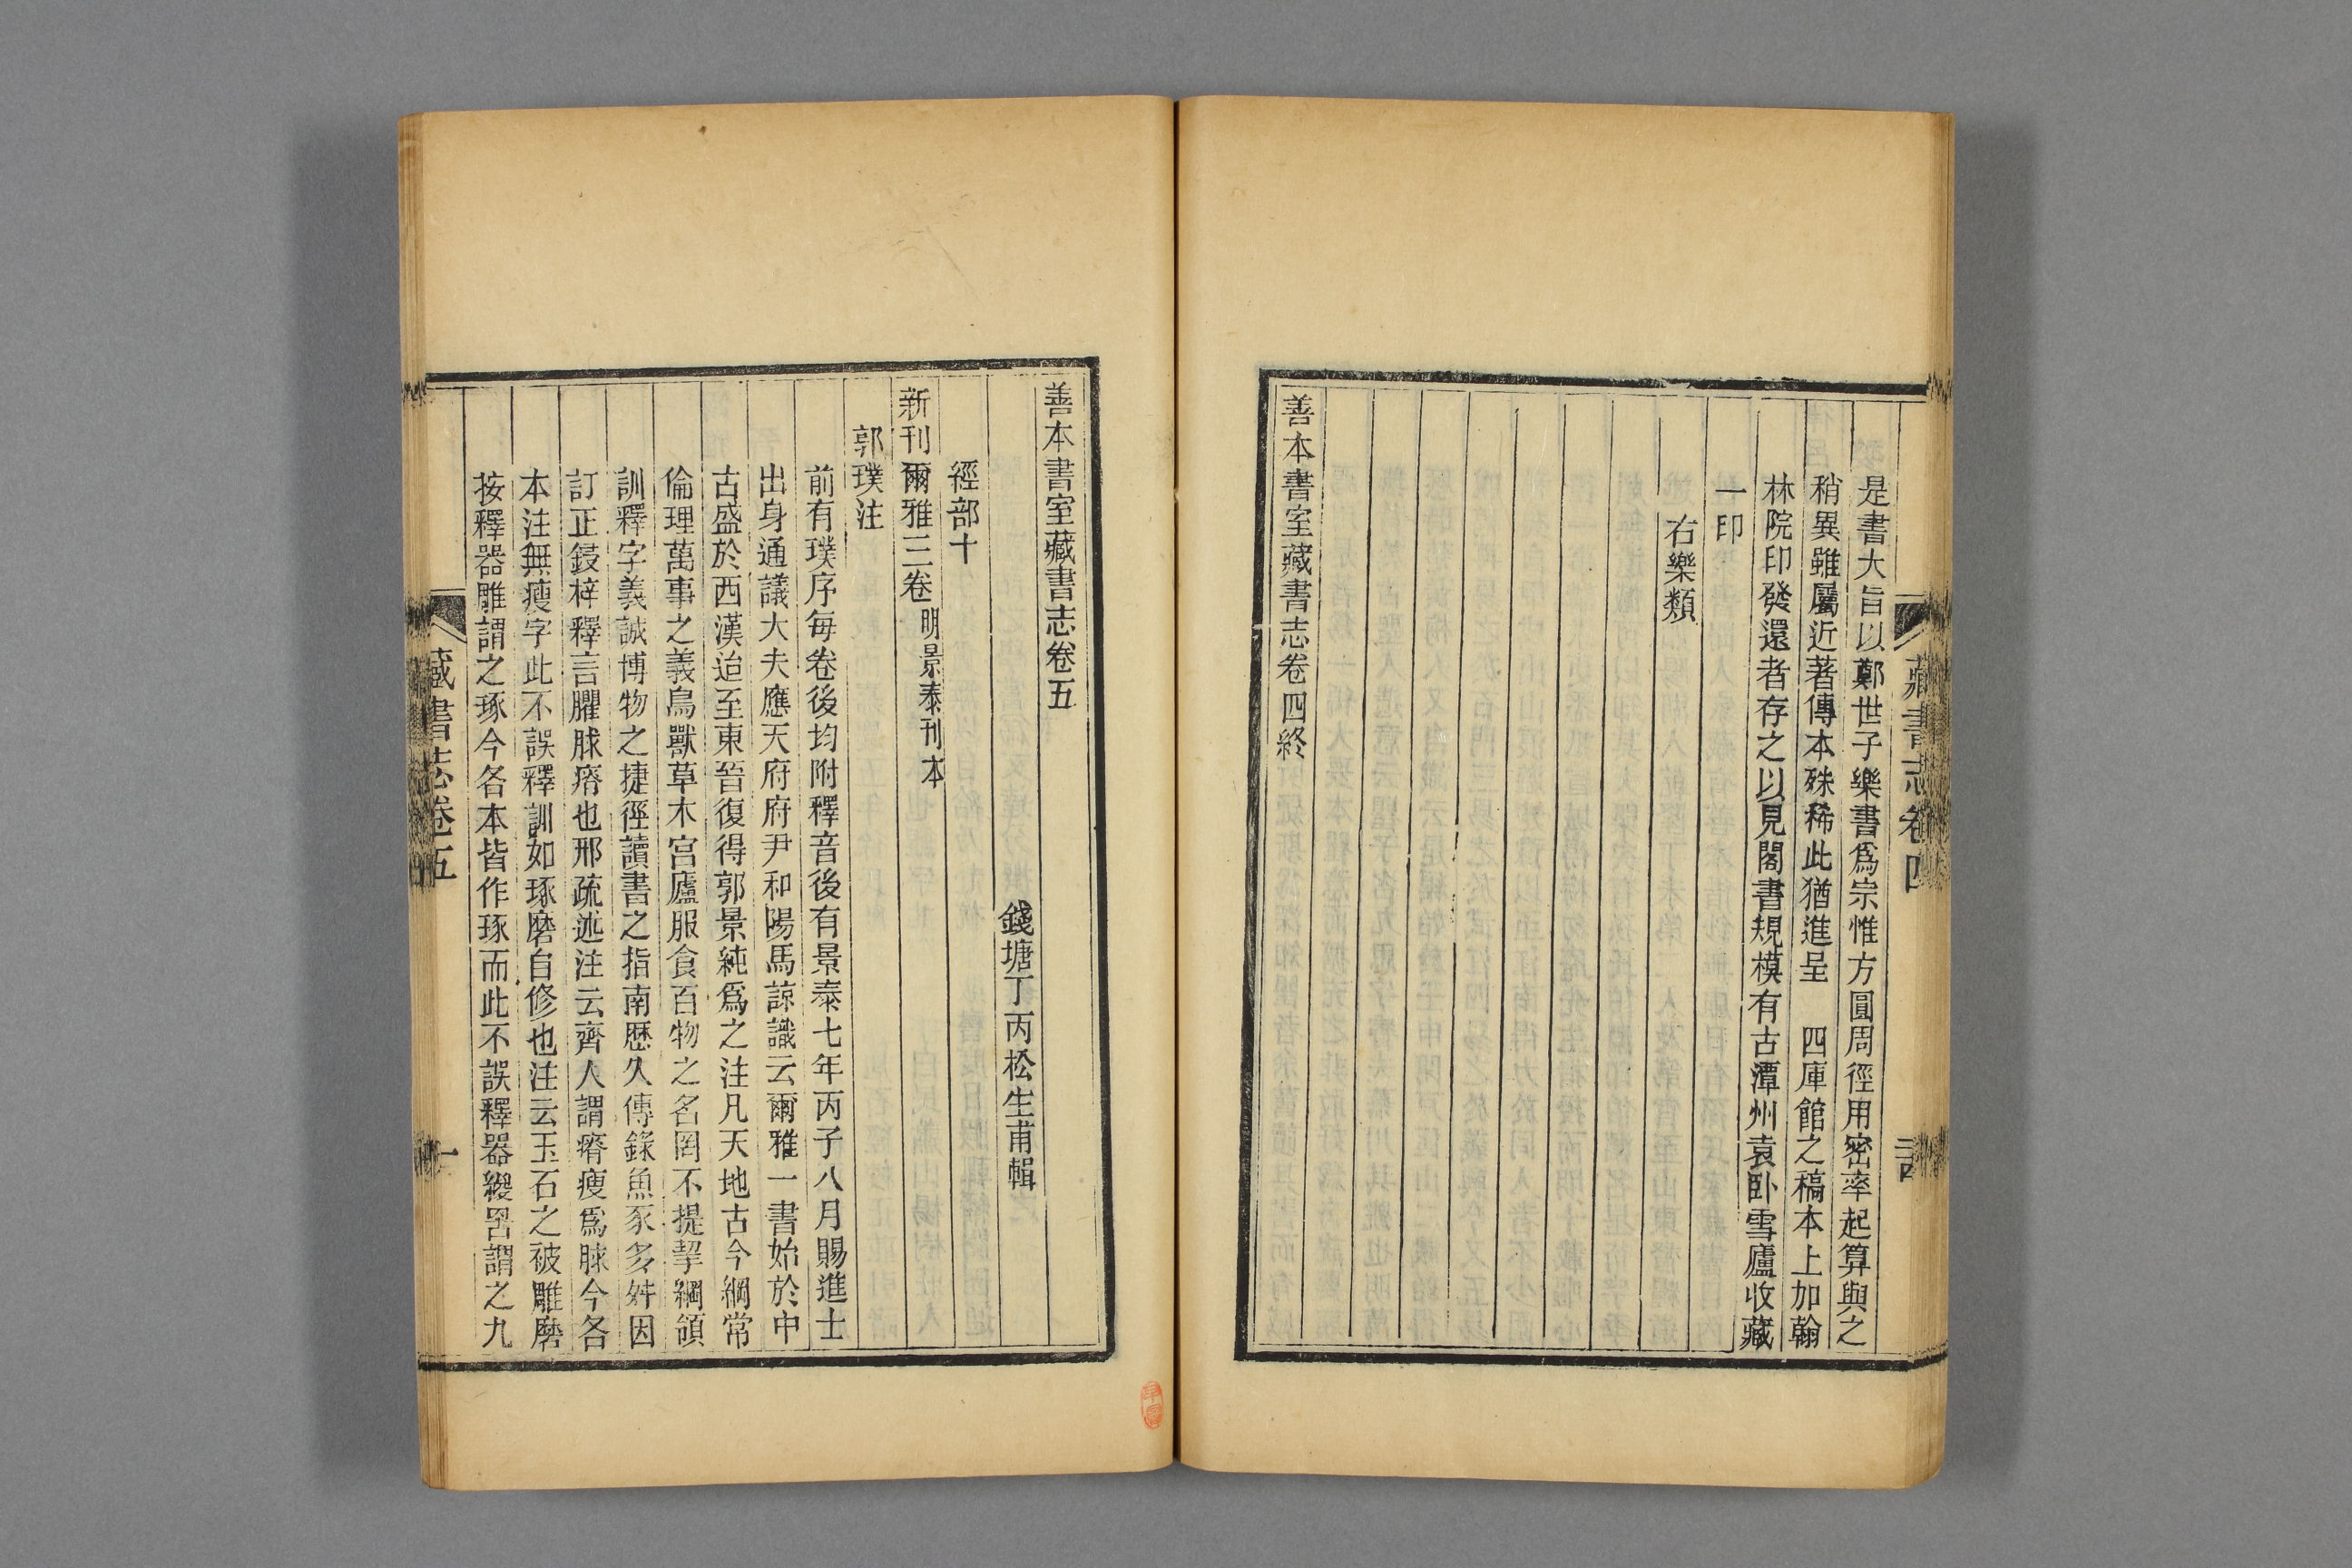 是書大旨以鄭世子樂書爲宗惟方圓周徑用密率起算與之
稍異雖屬近著傳本殊稀此猶進呈　四庫館之稿本上加翰
林院印發還者存之以見閣書規模有古潭州袁卧雪廬收藏
一印
右樂類
善本書室藏書志卷四終
藏書志卷四
善本書室藏書志卷五
錢塘丁丙松生甫輯
經部十
新刊爾雅三卷 明景泰刊本
郭璞注
前有璞序每卷後均附釋音後有景泰七年丙子八月賜進士
出身通議大夫應天府府尹和陽馬諒識云爾雅一書始於中
古盛於西漢迨至東晉復得郭景純爲之注凡天地古今綱常
倫理萬事之義鳥獸草木宫廬服食百物之名罔不提挈綱領
訓釋字義誠博物之捷徑讀書之指南歷久傳錄魚豕多舛因
訂正鋟梓釋言臞脙瘠也邢疏述注云齊人謂瘠瘦爲脙今各
本注無瘦字此不誤釋訓如琢磨自修也注云玉石之被雕磨
按釋器雕謂之琢今各本皆作琢而此不誤釋器緵罟謂之九
藏書志卷五
一